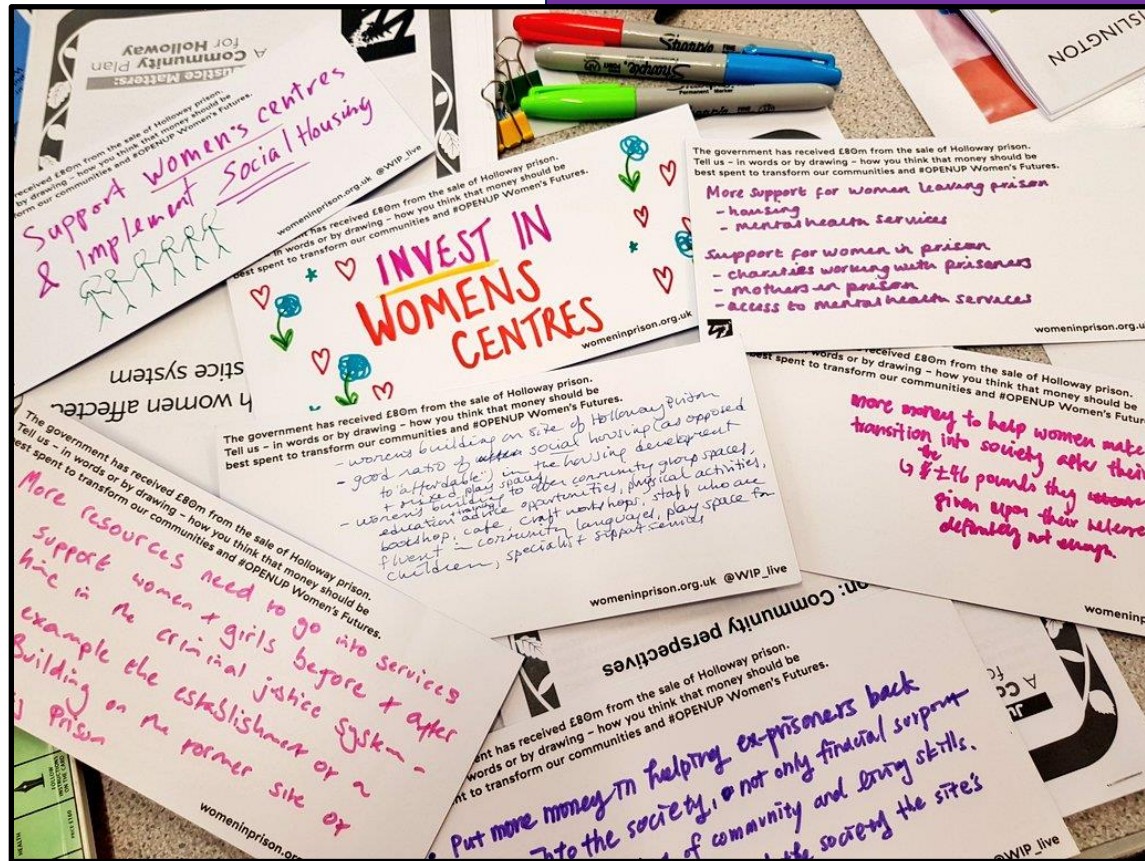 Justice Matters:
A Community Plan
for Holloway
received £80m from the sale of Holloway prison.
by drawing – how you think that money should be
form our communities and #OPENUP Women's Futures.
Support women's centres
& implement Social Housing
womeninprison.org.uk @WIP_live
Sharpie
Sharpie
Permanent Marker
SLINGTON
has received £80m from the sale of Holloway prison.
in words or by drawing – how you think that money should be
best spent to transform our communities and #OPENUP Women's Futures.
INVEST IN
WOMENS
CENTRES
womeninprison.org.uk
The government has received £80m from the sale of Holloway prison.
Tell us – in words or by drawing – how you think that money should be
best spent to transform our communities and #OPENUP Women's Futures.
More support for women leaving prison
- housing
- mental health services
Support for women in prison
- charities working with prisoners
- mothers in prison
- access to mental health services
womeninprison.org.u
stice system
h women affected
The government has received £80m from the sale of Holloway prison.
Tell us – in words or by drawing – how you think that money should be
best spent to transform our communities and #OPENUP Women's Futures.
- womens building on site of Holloway Prison
- good ratio of social housing (as opposed
to 'affordable') in the housing development
+ mixed play spaces
- womens building to offer community group spaces,
education, training, advice opportunities, physical activities,
bookshop, cafe, craft workshops, staff who are
fluent in community languages, play space for
children, specialist support services
womeninprison.org.uk @WIP_live
received £80m from the sale of Holloway prison.
in words or by drawing – how you think that money should be
best spent to transform our communities and #OPENUP Women's Futu
more money to help women make
transition into society after their
↳ the £46 pounds they
given upon their release
definitely not enough.
womeninp
The government has received £80m from the sale of Holloway prison.
Tell us – in words or by drawing – how you think that money should be
best spent to transform our communities and #OPENUP Women's Futures.
More resources need to go into services
support women + girls before + after
time in the criminal justice system -
example the establishment of a
Building on the former site of
Prison
womeninprison.or
on: Community perspectives
ent has received £80m from the sale of Holloway prison.
words or by drawing – how you think that money should be
nt to transform our communities and #OPENUP Women's Futures.
Put more money in helping ex-prisoners back
into the society, not only finacial support
of community and living skills.
the society the site's
@WIP_live
FOLLOW
INSTRUCTIONS
ON THE CARD
HEALTH
PRICE £160